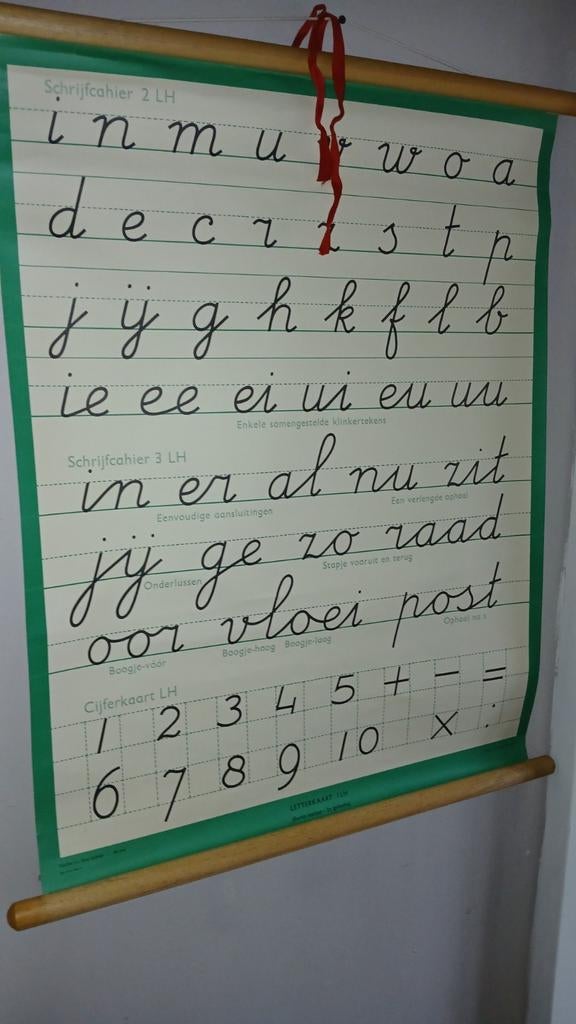 Schrijfcahier 2 LH
i n m u v w o a
d e c r z s t p
j ij g h k f l b
ie ee ei ui eu uu
Enkele samengestelde klinkertekens
Schrijfcahier 3 LH
in er al nu zit
Eenvoudige aansluitingen Een verlengde ophaal
jij ge zo raad
Onderlussen Stapje vooruit en terug
oor vloei post
Boogje-vóór Boogje-hoog Boogje-laag Ophaal na s
Cijferkaart LH
1 2 3 4 5 + - =
6 7 8 9 10 x :
LETTERKAART 1 LH